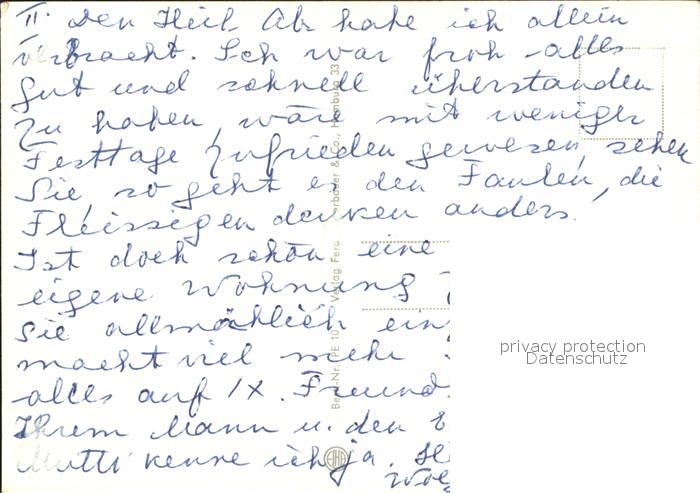 II. Den Heil. Ab. habe ich allein
verbracht. Ich war froh alles
gut und schnell überstanden
zu haben, wäre mit weniger
Festtage zufrieden gewesen, sehen
Sie, so geht es den Faulen, die
Fleissigen denken anders.
Ist doch schön eine
eigene Wohnung
Sie allmählich ein
macht viel mehr
alles auf 1x. Freund
Ihrem Mann u. den
Mutti kenne ich ja.
Verlag Ferd.
Hamburg 33
privacy protection
Datenschutz